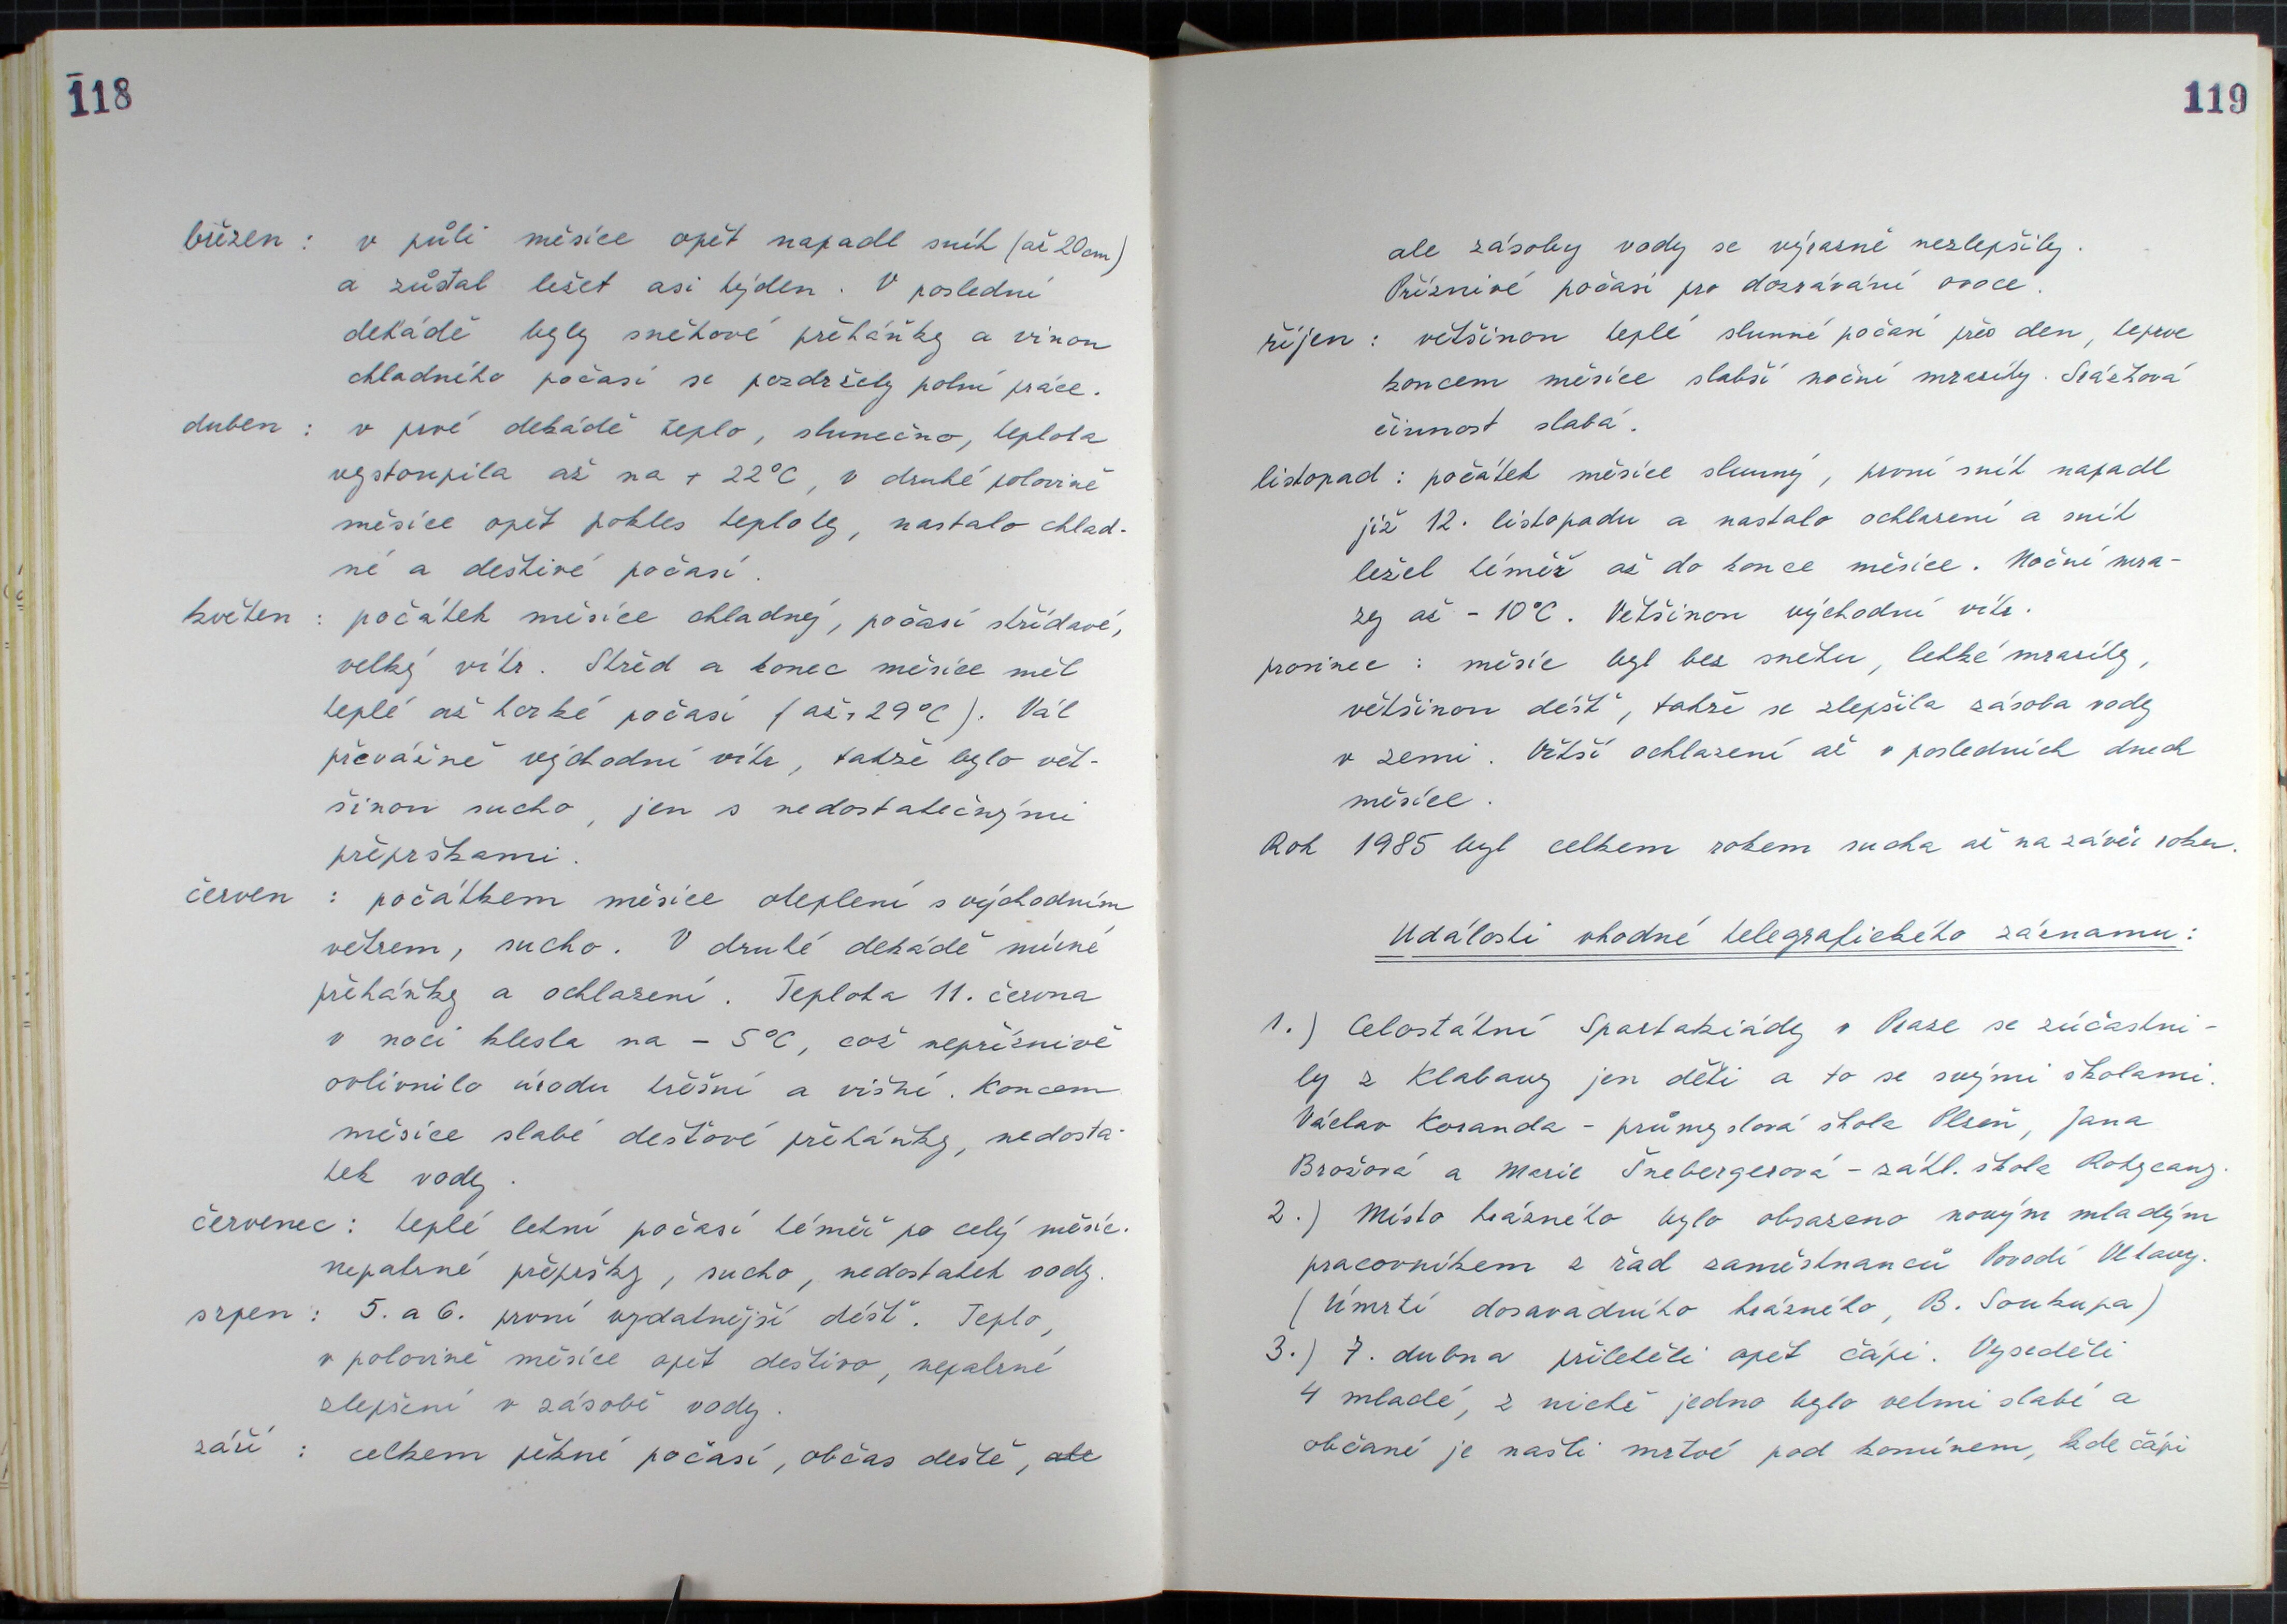 118
březen : v půli měsíce opět napadl sníh (až 20 cm)
a zůstal ležet asi týden. V poslední
dekádě byly sněhové přeháňky a vinou
chladného počasí se pozdržely polní práce.
duben : v prvé dekádě teplo, slunečno, teplota
vystoupila až na + 22°C, v druhé polovině
měsíce opět pokles teploty, nastalo chlad-
né a deštivé počasí.
květen : počátek měsíce chladný, počasí střídavé,
velký vítr. Střed a konec měsíce měl
teplé až horké počasí (až + 29°C). Vál
převážně východní vítr, takže bylo vět-
šinou sucho, jen s nedostatečnými
přeprškami.
červen : počátkem měsíce oteplení s východním
větrem, sucho. V druhé dekádě mírné
přeháňky a ochlazení. Teplota 11. června
v noci klesla na - 5°C, což nepříznivě
ovlivnilo úrodu třešní a višní. Koncem
měsíce slabé dešťové přeháňky, nedosta-
tek vody.
červenec : teplé letní počasí téměř po celý měsíc.
nepatrné přepršky, sucho, nedostatek vody.
srpen : 5. a 6. první vydatnější déšť. Teplo,
v polovině měsíce opět deštivo, nepatrné
zlepšení v zásobě vody.
září : celkem pěkné počasí, občas deště, ale
119
ale zásoby vody se výrazně nezlepšily.
Příznivé počasí pro dozrávání ovoce.
říjen : většinou teplé slunné počasí přes den, teprve
koncem měsíce slabší noční mrazíky. Srážková
činnost slabá.
listopad : počátek měsíce slunný, první sníh napadl
již 12. listopadu a nastalo ochlazení a sníh
ležel téměř až do konce měsíce. Noční mra-
zy až - 10°C. Většinou východní vítr.
prosinec : měsíc byl bez sněhu, lehké mrazíky,
většinou déšť, takže se zlepšila zásoba vody
v zemi. Větší ochlazení až v posledních dnech
měsíce.
Rok 1985 byl celkem rokem sucha až na závěr roku.
Události vhodné telegrafického záznamu:
1.) Celostátní Spartakiády v Praze se zúčastni-
ly z Klabavy jen děti a to se svými školami.
Václav Koranda - průmyslová škola Plzeň, Jana
Brožová a Marie Šnebergerová - zákl. škola Rokycany.
2.) Místo hrázného bylo obsazeno novým mladým
pracovníkem z řad zaměstnanců Povodí Vltavy.
(Úmrtí dosavadního hrázného, B. Soukupa)
3.) 7. dubna přiletěli opět čápi. Vyseděli
4 mladé, z nichž jedno bylo velmi slabé a
občané je našli mrtvé pod komínem, kde čápi